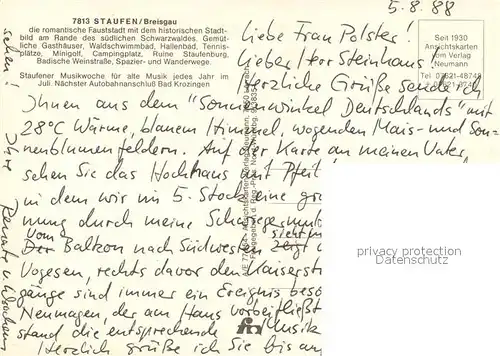 7813 STAUFEN/Breisgau
die romantische Fauststadt mit dem historischen Stadt-
bild am Rande des südlichen Schwarzwaldes. Gemüt-
liche Gasthäuser, Waldschwimmbad, Hallenbad, Tennis-
plätze, Minigolf, Campingplatz, Ruine Staufenburg.
Badische Weinstraße, Spazier- und Wanderwege.
Staufener Musikwoche für alte Musik jedes Jahr im
Juli. Nächster Autobahnanschluß Bad Krozingen
5.8.88
Seit 1930
Ansichtskarten
vom Verlag
Neumann
Liebe Frau Polster!
Lieber Herr Steinhaus!
Herzliche Grüße sende ich
Ihnen aus dem "Sonnenwinkel Deutschlands" mit
28°C Wärme, blauem Himmel, wogenden Mais- und Son-
nenblumenfeldern. Auf der Karte an meinen Vater
sehen Sie das Hochhaus mit Pfeil
in dem wir im 5. Stock eine
nung durch meine
Vom sieht m
Der Balkon nach Südwesten zeigt
Vogesen, rechts davor den Kaiserst
gänge sind immer ein Ereignis
Neumagen, der am Haus vorbeifließt
stand die entsprechende Musik
Herzlich grüße ich Sie bis
sehen!
Ihre
privacy protection
Datenschutz